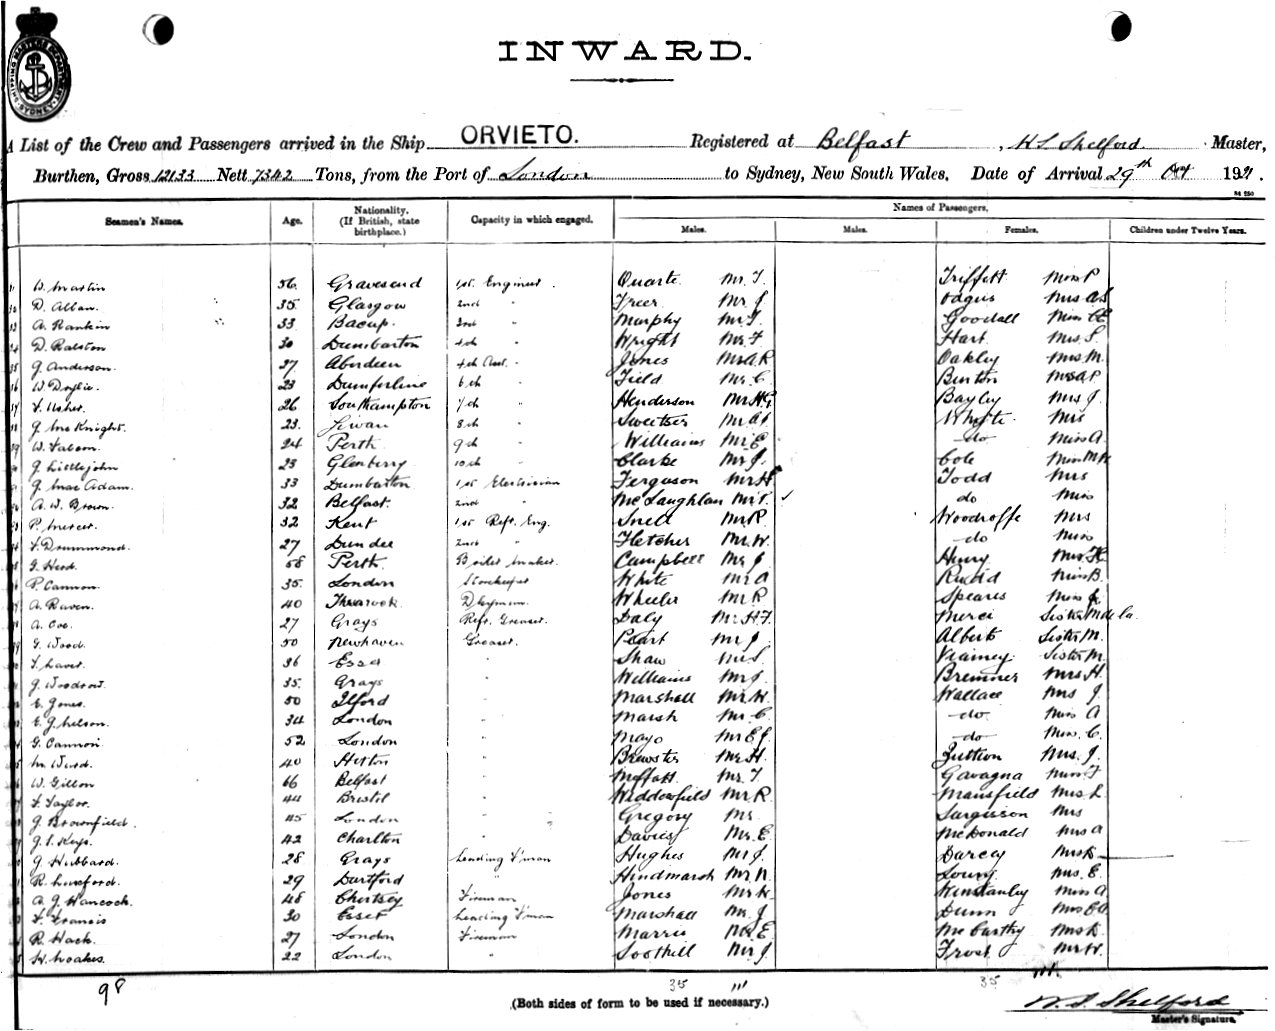 INWARD.
A List of the Crew and Passengers arrived in the Ship ORVIETO. Registered at Belfast, Shelford Master,
Burthen, Gross 12133 Nett 7342 Tons, from the Port of London to Sydney, New South Wales, Date of Arrival 29th Oct 192
Seamen's Names. Age. Nationality. (If British, state birthplace.) Capacity in which engaged. Names of Passengers.
Males. Males. Females. Children under Twelve Years.
Martin 56 Gravesend 1st Engineer Quarte Mr. T. Triffett Miss P
D. Allan. 35 Glasgow 2nd " Freer Mr J Mrs
A. Rankin 33 Bacup. 3rd " Murphy Mr Goodall Miss
D. Ralston 30 Dumbarton 4th " Wright Mr F Hart Mrs S.
J. Anderson. 27 Aberdeen 4th Asst. " Jones Mr A R Oakley Mrs M.
W. 23 Dumferline 6th " Field Mr C. Burton
Usher. 26 Southampton 7th " Henderson Mr H G Bayley Mrs J
J. McKnight. 23. 8th " Sweetser Mr Whyte Mrs
W. 24 Perth 9th " Williams Mr E do Miss A.
J. Littlejohn 23 Glenberry 10th " Clarke Mr J. Cole Miss
J. MacAdam. 33 Dumbarton 1st Electrician Ferguson Mr H Todd Mrs
A. W. Brown. 32 Belfast. 2nd " McLaughlan Mr do Miss
P. Mercer. 32 Kent 1st Refr. Eng. Snell Mr R Woodroffe Mrs
Drummond. 27 Dundee 2nd " Fletcher Mr W. do Miss
Herd. 58 Perth Boiler maker. Campbell Mr J Henry Mrs
P. Cannon. 35. London Storekeeper White Mr A Miss B.
A. Raven. 40 Wheeler Mr R Speares Miss
A. Coe. 27 Grays Refr. Greaser. Daly Mr H. F. Merci Sister M de la
G. Wood. 50 Newhaven Greaser. Peart Mr J Alberts Sister M.
36 Essex " Shaw Mr S. Sister M.
J. Woodrow. 35. Grays " Williams Mr J Bremner Mrs H.
E. Jones. 50 Ilford " Marshall Mr W. Wallace Mrs J
E. J. Nelson. 34 London " Marsh Mr C. do Miss A
G. Cannon. 52 London " Mayo Mr E J do Miss C.
Ward. 40 Heston " Brewster Mr H. Mrs. J.
W. Gillon 66 Belfast " Moffatt Mr. T. Gavagna Miss F
Taylor. 44 Bristol " Widdowfield Mr R. Mansfield Mrs L
J. Brownfield. 45 London " Gregory Mr. Surgisson Mrs
J. Keys. 42 Charlton " Davies Mr. E. McDonald Mrs A
J. Hubbard. 28 Grays Leading F'man Hughes Mr J. Darcey Mrs
R. 29 Dartford " Hindmarsh Mr N. Mrs. E.
A. J. Hancock. 48 Chertsey Fireman Jones Mr W. Winstanley Miss A
Francis 30 Essex Leading F'man Marshall Mr. J Dunn Mrs
R. Hack. 27 London Fireman Marris Mr E McCarthy Mrs
Noakes. 22 London " Soothill Mr J. Frost Mr W.
98 35 35
(Both sides of form to be used if necessary.) Shelford
Master's Signature.